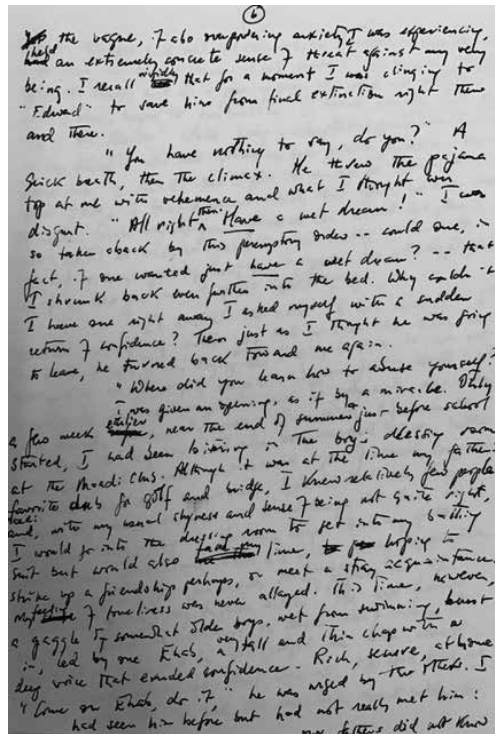 6
the vague, & also overpowering anxiety I was experiencing,
had an extremely concrete sense of threat against my very
being. I recall vividly that for a moment I was clinging to
"Edward" to save him from final extinction right there
and there.
"You have nothing to say, do you?" A
quick breath, then the climax. He threw the pajama
top at me with vehemence and what I thought was
disgust. "All right then. Have a wet dream!" I was
so taken aback by this peremptory order -- could one, in
fact, if one wanted just have a wet dream? -- that
I shrunk back even further into the bed. Why couldn't
I have one right away I asked myself with a sudden
return of confidence? Then just as I thought he was going
to leave, he turned back toward me again.
"Where did you learn how to abuse yourself?"
I was given an opening, as if by a miracle. Only
a few week earlier, near the end of summer just before school
started, I had been in the boys dressing room
at the Maadi Club. Although it was at the time my father
favorite club for golf and bridge, I knew relatively few people
and, with my usual shyness and sense of being not quite right,
I would go into the dressing room to get into my bathing
suit but would also time, hoping to
strike up a friendship perhaps, or meet a stray acquaintance.
My feeling of loneliness was never allayed. This time, however,
a gaggle of somewhat older boys, wet from swimming, burst
in, led by one Ehab, a very tall and thin chap with a
deep voice that exuded confidence. Rich, secure, at home
"Come on Ehab, do it," he was urged by the others. I
had seen him before but had not really met him:
our fathers did not know